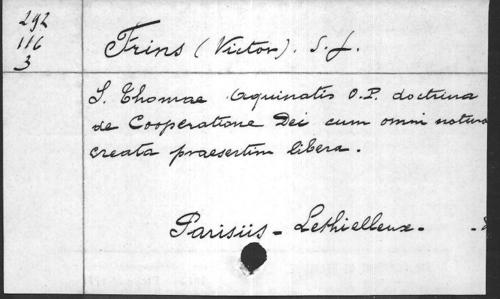 292
116
3
Frins (Victor). S. J.
S. Thomae Aquinatis O.P. doctrina
de Cooperatione Dei cum omni natura
creata praesertim libera.
Parisiis - Lethielleux -